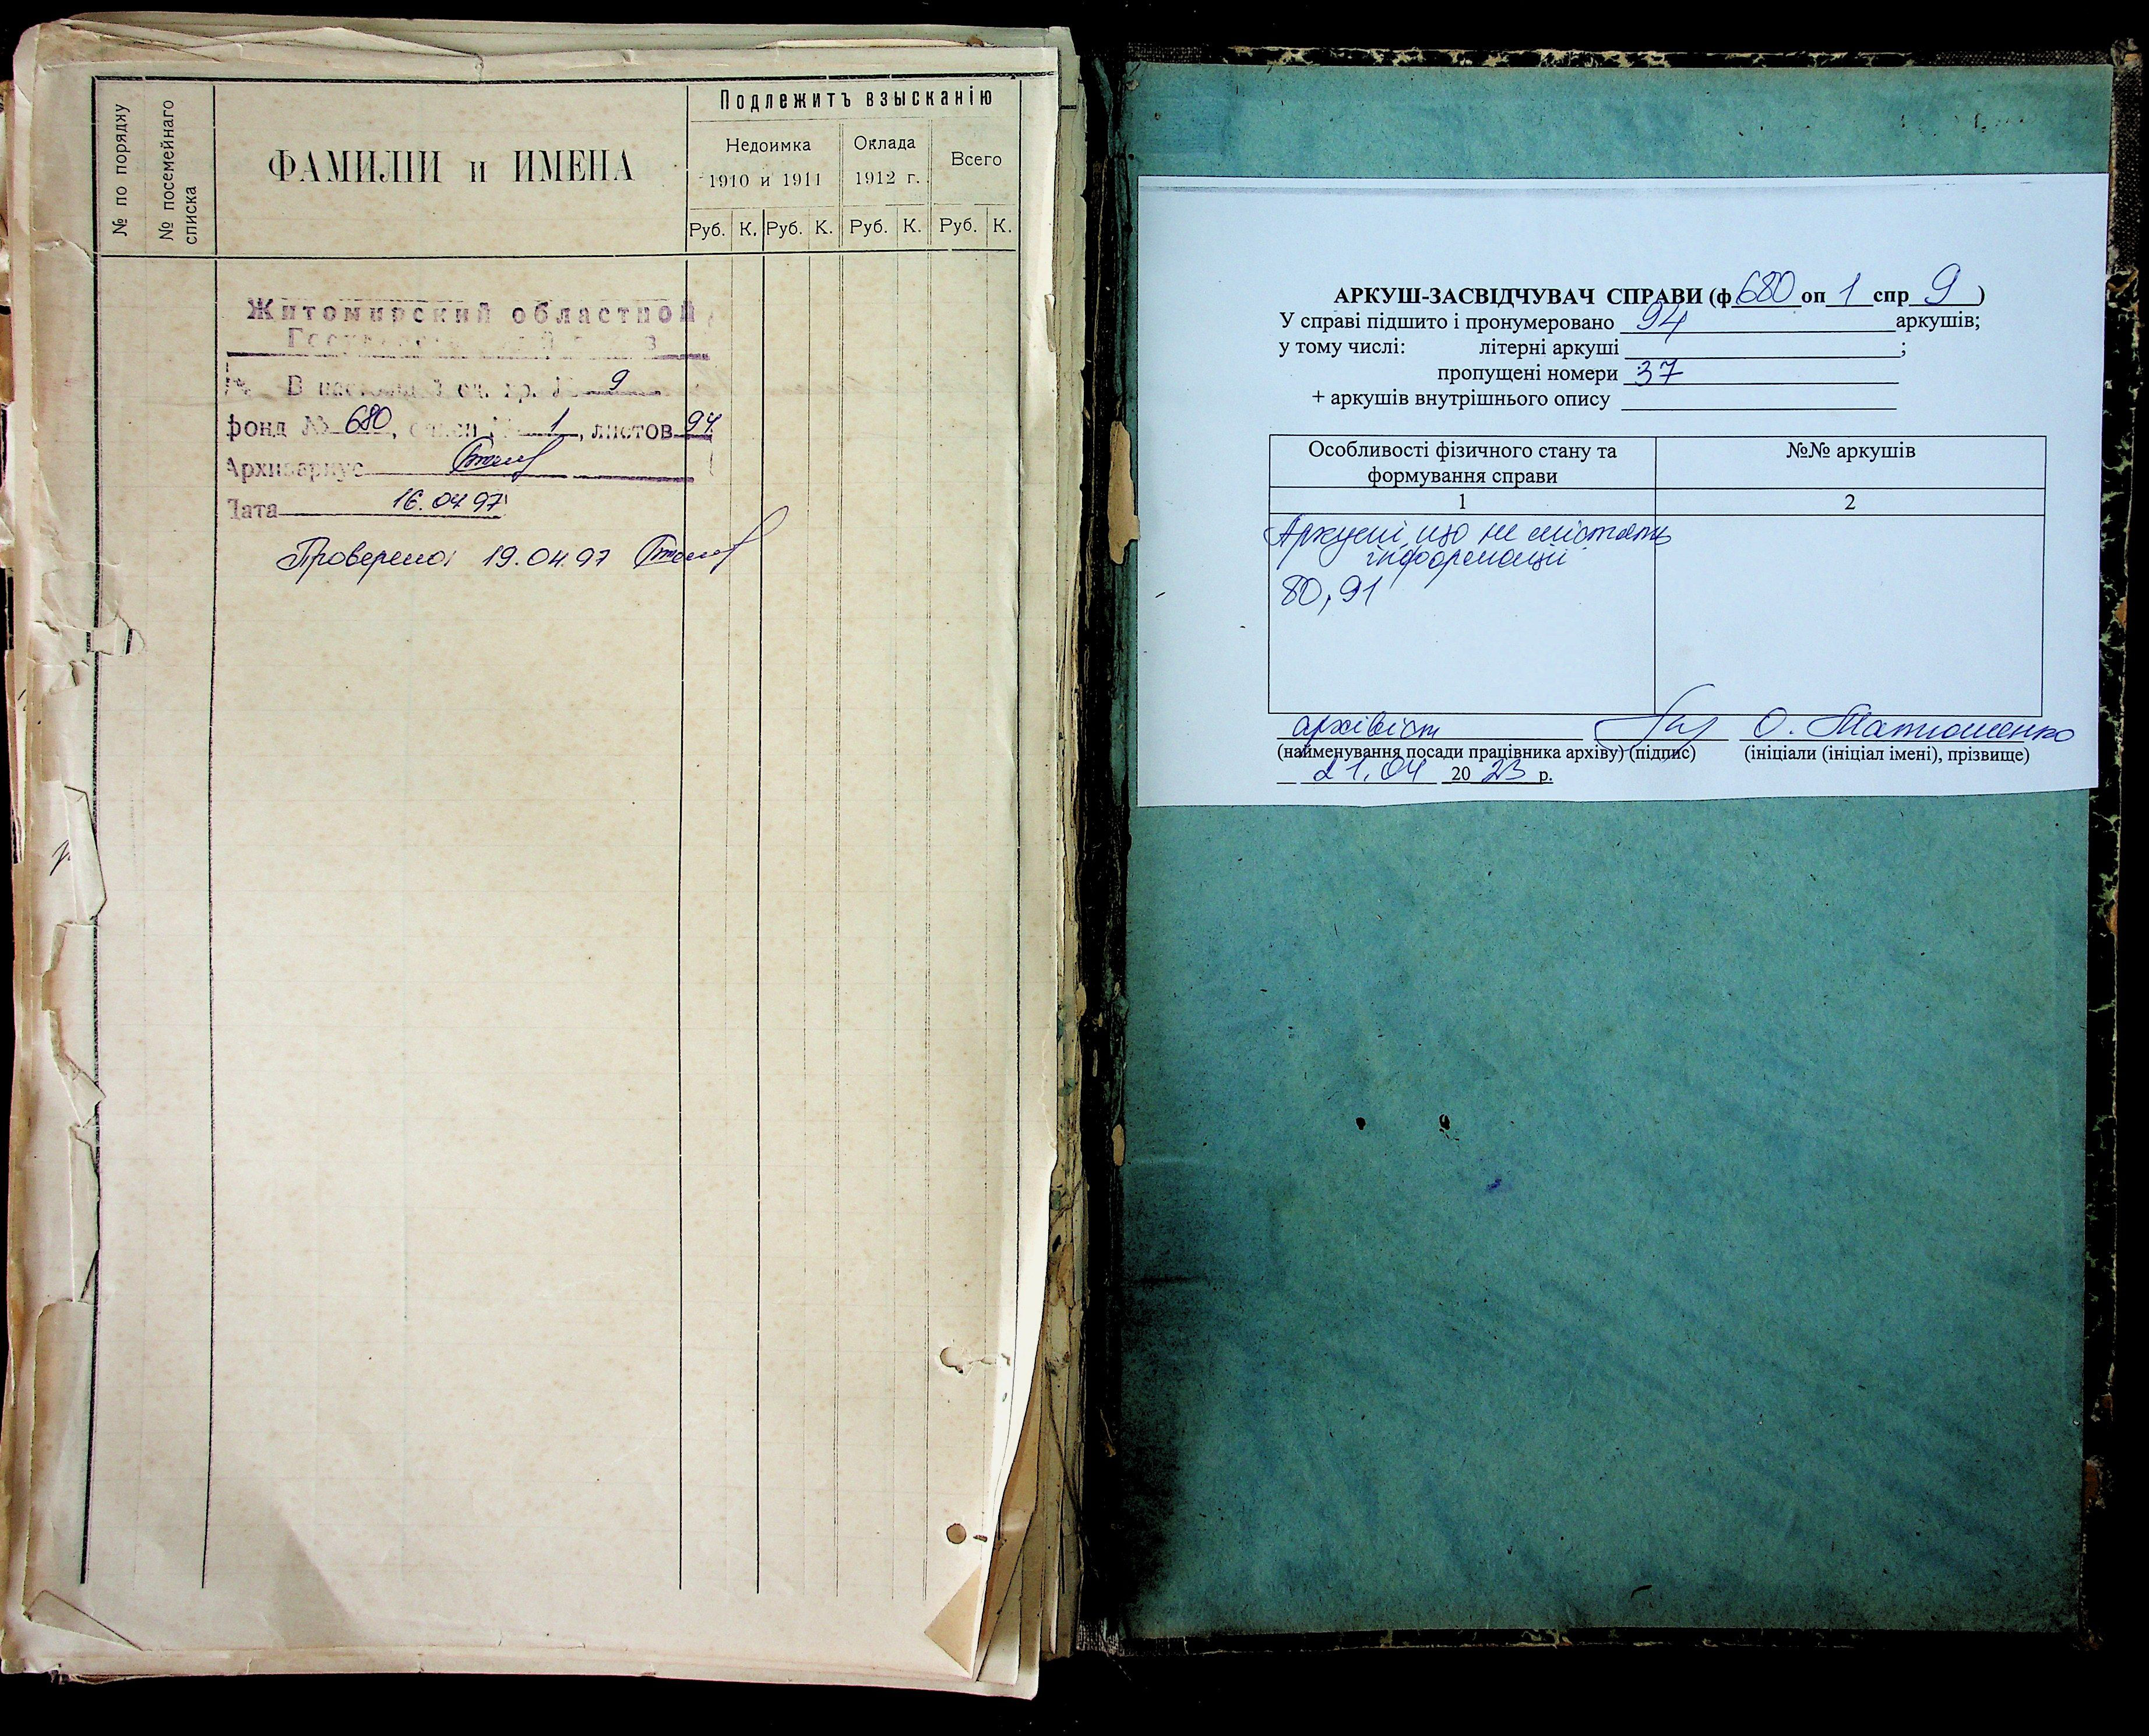 № по порядку
№ посемейнаго списка
ФАМИЛІИ и ИМЕНА
Подлежитъ взысканію
Недоимка
1910 и 1911
Оклада
1912 г.
Всего
Руб. К. Руб. К. Руб. К. Руб. К.
Житомирский областной
В 9
фонд № 680, 1, листов 94
Архивариус
Дата 16.04.97
Проверено: 19.04.97
АРКУШ-ЗАСВІДЧУВАЧ СПРАВИ (ф 680 оп 1 спр 9 )
У справі підшито і пронумеровано 94 аркушів;
у тому числі: літерні аркуші ;
пропущені номери 37
+ аркушів внутрішнього опису
Особливості фізичного стану та формування справи
№№ аркушів
1 2
Аркуші, що не містять
інформації
80, 91
архівіст О. Матюшенко
(найменування посади працівника архіву) (підпис) (ініціали (ініціал імені), прізвище)
21.04 2023 р.